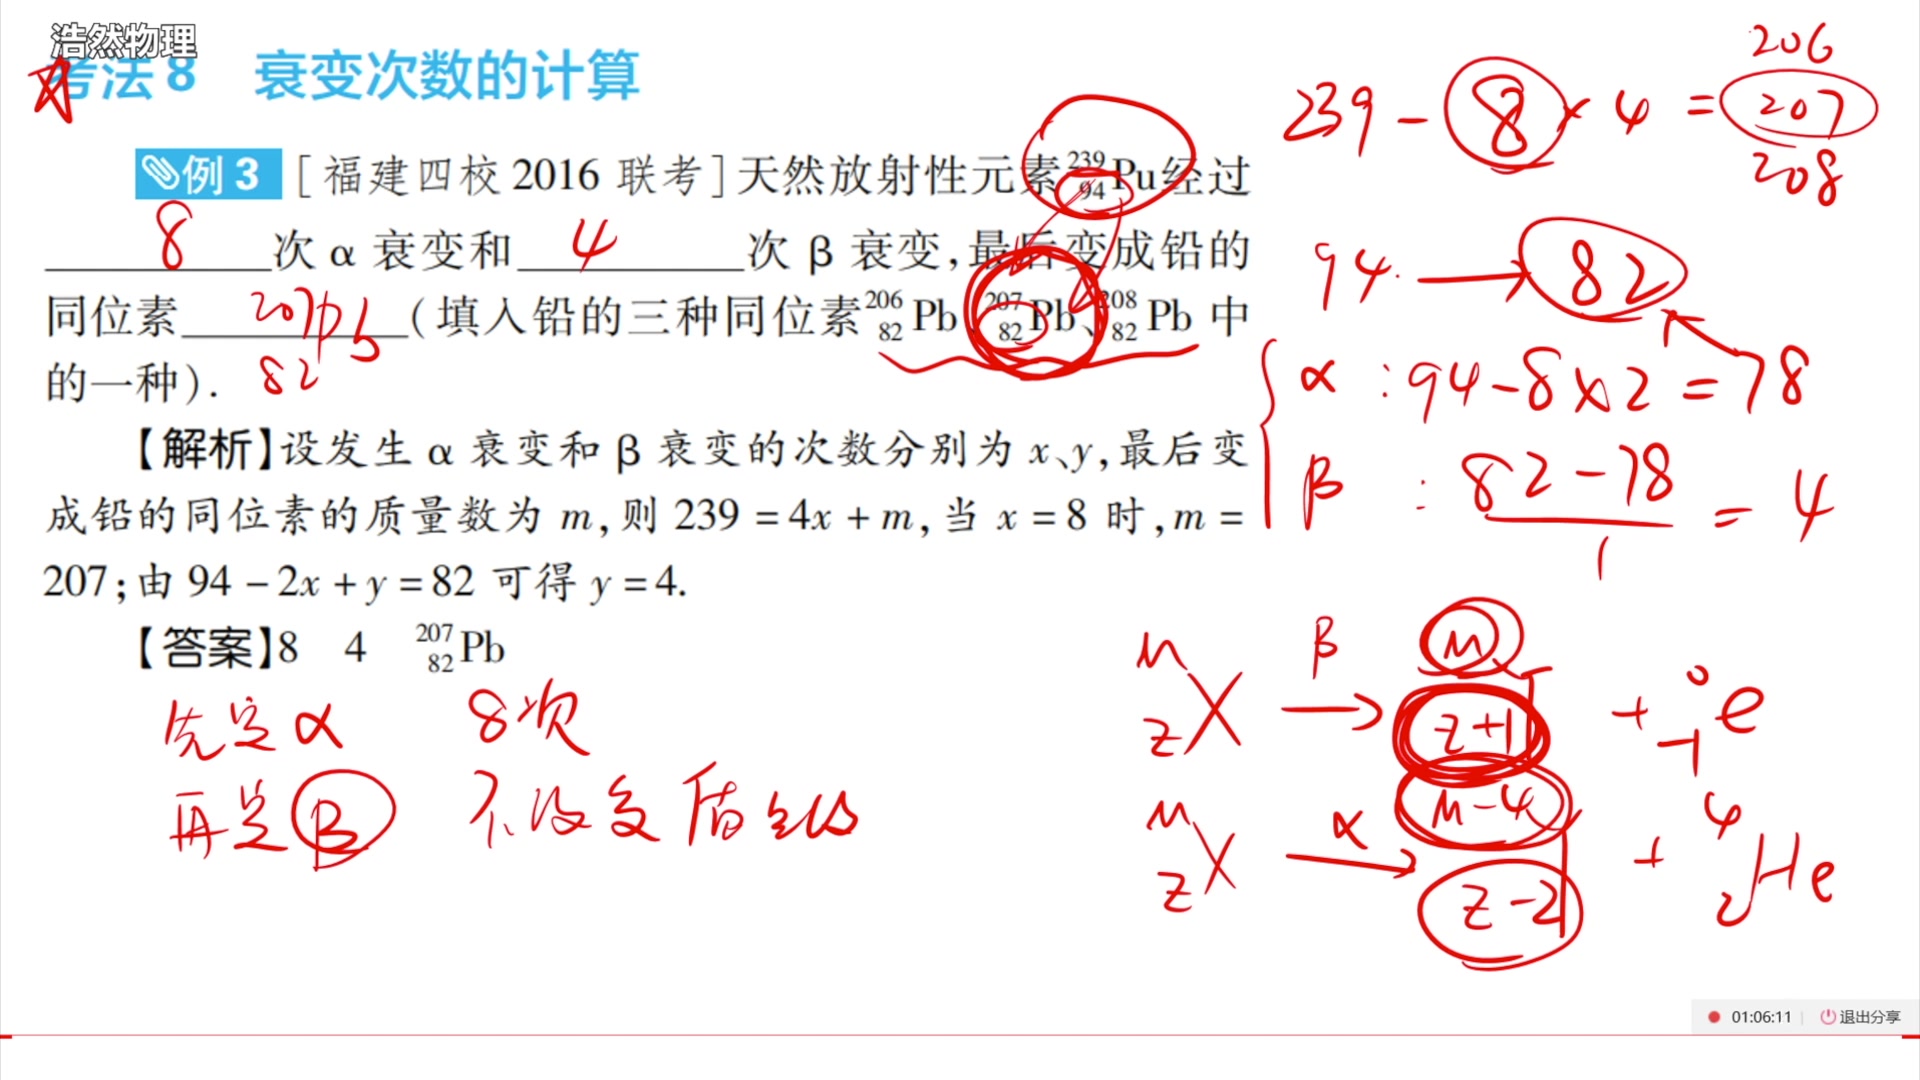 浩然物理
考法 8 衰变次数的计算
例 3 [福建四校 2016 联考]天然放射性元素²³⁹₉₄Pu经过
8次 α 衰变和4次 β 衰变,最后变成铅的
同位素²⁰⁷₈₂Pb(填入铅的三种同位素²⁰⁶₈₂Pb、²⁰⁷₈₂Pb、²⁰⁸₈₂Pb 中
的一种).
【解析】设发生 α 衰变和 β 衰变的次数分别为 x、y,最后变
成铅的同位素的质量数为 m,则 239 = 4x + m,当 x = 8 时,m =
207;由 94 − 2x + y = 82 可得 y = 4.
【答案】8 4 ²⁰⁷₈₂Pb
先定 α 8次
再定 β 不改变质量数
206
239 − 8 × 4 = 207
208
94 → 82
α : 94 − 8 × 2 = 78
β : 82 − 78 = 4
1
M Z X β → M Z+1 + 0 −1 e
M Z X α → M−4 Z−2 + 4 2 He
01:06:11 退出分享